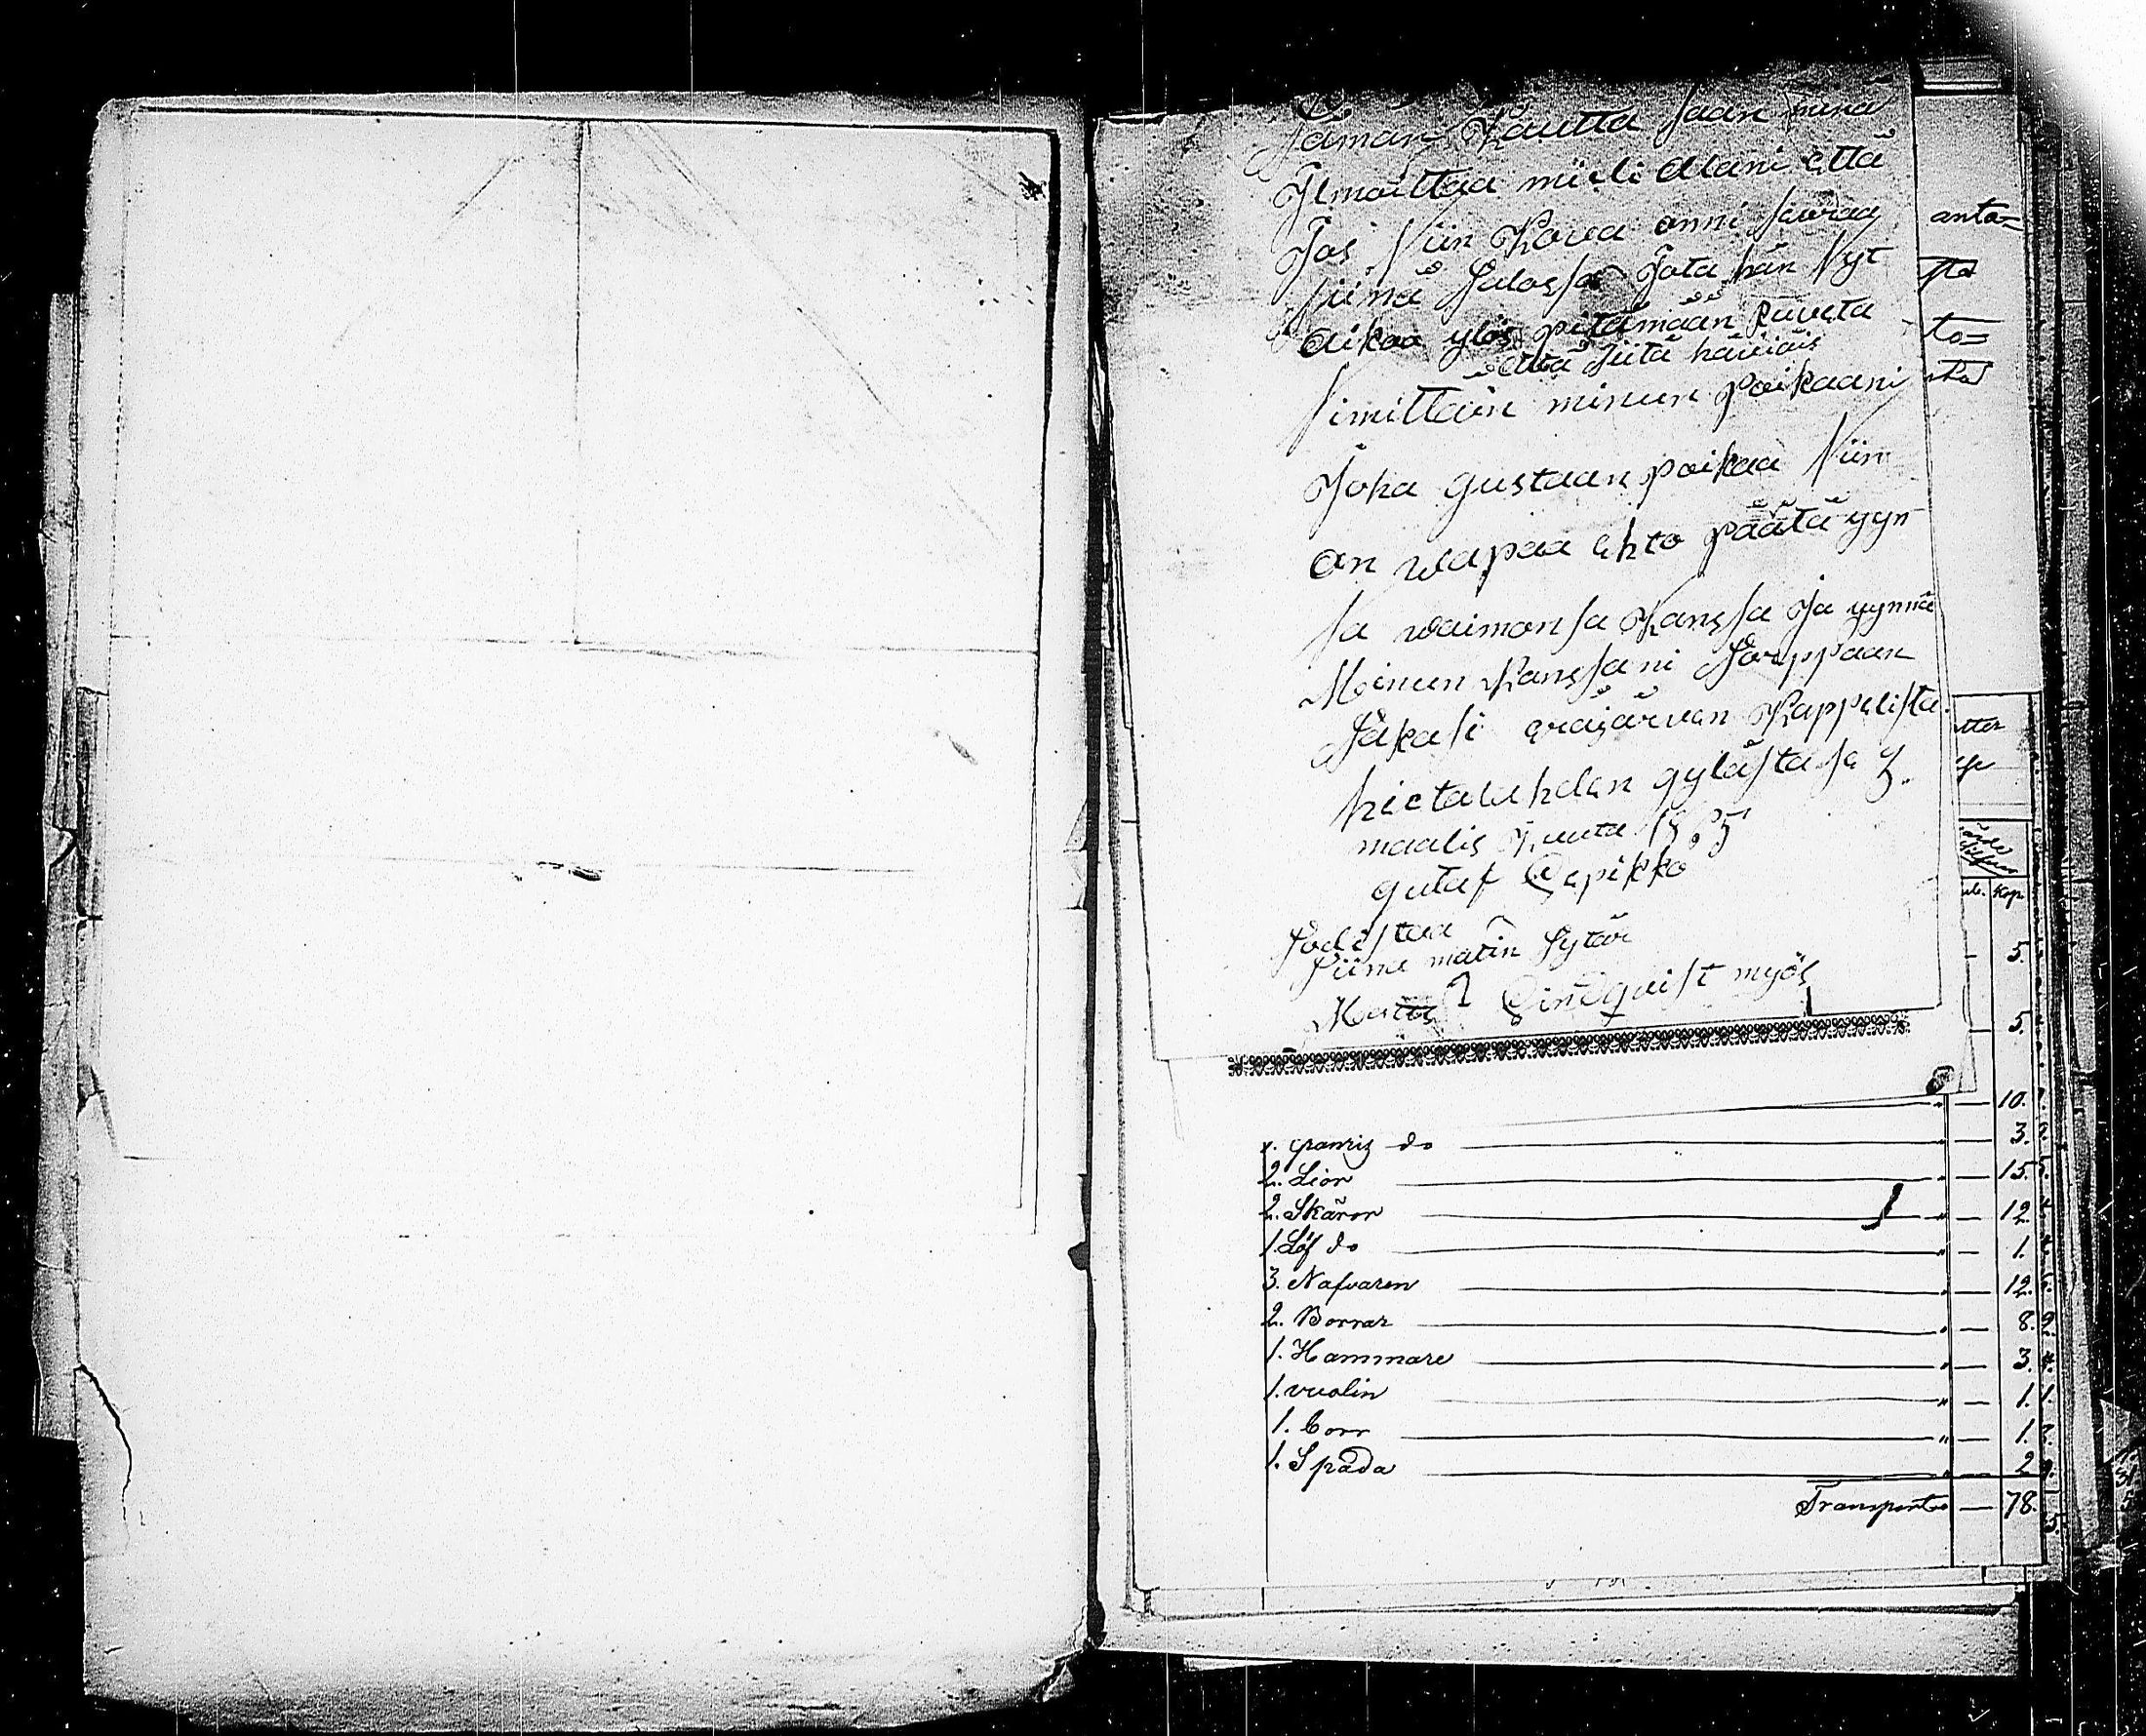 Tämän Kautta saan minä
Ilmoittaa mieli alani että
Jos niin Kova onni seuraa
siinä talossa Jota hän Nyt
aikaa ylös pitämään ruveta
että siitä häviäis
Nimittäin minun poikaani
Joha gustaan poikaa Niin
on wapaa ehto päätä yyn
sa waimonsa Kanssa Ja yynnä
Minun Kanssani Torppaan
Takasi Kappelista
hietalahden gylästä sa 3.
maalis Kuuta
gutaf Lepikko
Todistaa
Siina matin Tytär
Lindqvist myös
anta=
sta
to=
Kop.
5.
5.
10.
1. do — " — 3.
2. Lior — " — 15.
2. Skäror — " — 12.
1. Löf do — " — 1.
3. Nafvaren — " — 12.
2. Borrar — " — 8.
1. Hammare — " — 3.
1. vuolin — " — 1.
1. Borr — " — 1.
1. Spada — " — 2
Transport — 78.